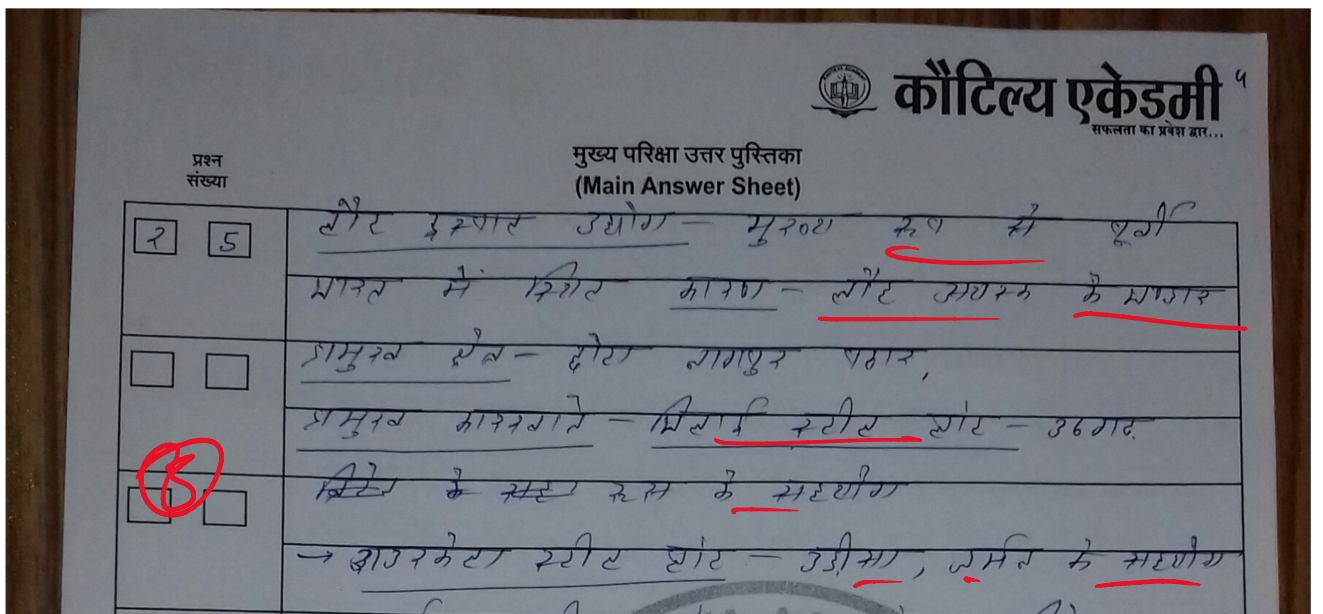 कौटिल्य एकेडमी ५
सफलता का प्रवेश द्वार...
मुख्य परिक्षा उत्तर पुस्तिका
(Main Answer Sheet)
प्रश्न
संख्या
2 5
लौह इस्पात उद्योग - मुख्य रूप से पूर्वी
भारत में स्थित कारण - लौह अयस्क के भण्डार
प्रामुख क्षेत्र - छोटा नागपुर पठार,
प्रामुख कारखाने - भिलाई स्टील प्लांट -
रूस के सहयोग
8
→ राउरकेला स्टील प्लांट - उड़ीसा, जर्मन के सहयोग